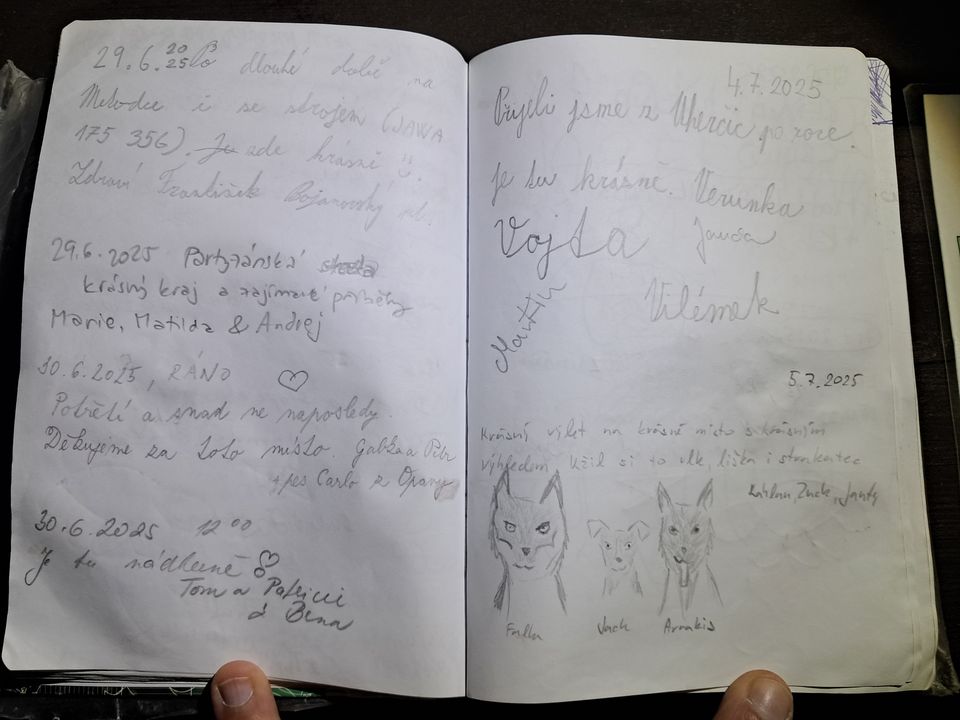 29.6.2025 Po dlouhé době na
Metodce i se strojem (JAWA
175 356). Je zde krásně
Zdraví František Bojanovský ml.
29.6.2025 Partyzánská
krásný kraj a zajímavé příběhy
Marie, Matilda & Andrej
30.6.2025, RÁNO
Potřetí a snad ne naposledy.
Děkujeme za toto místo. Gabka a Petr
+ pes Carlo z Opavy
30.6.2025 12⁰⁰
Je tu nádherně
Tom a Patricií
a Bena
4.7.2025
Přijeli jsme z Uherčic po roce.
Je tu krásně. Verunka
Vojta
Vilémek
Martin
5.7.2025
Krásný výlet na krásné místo s krásným
výhledem Užil si to vlk, liška i
Falka Jack Arrakis